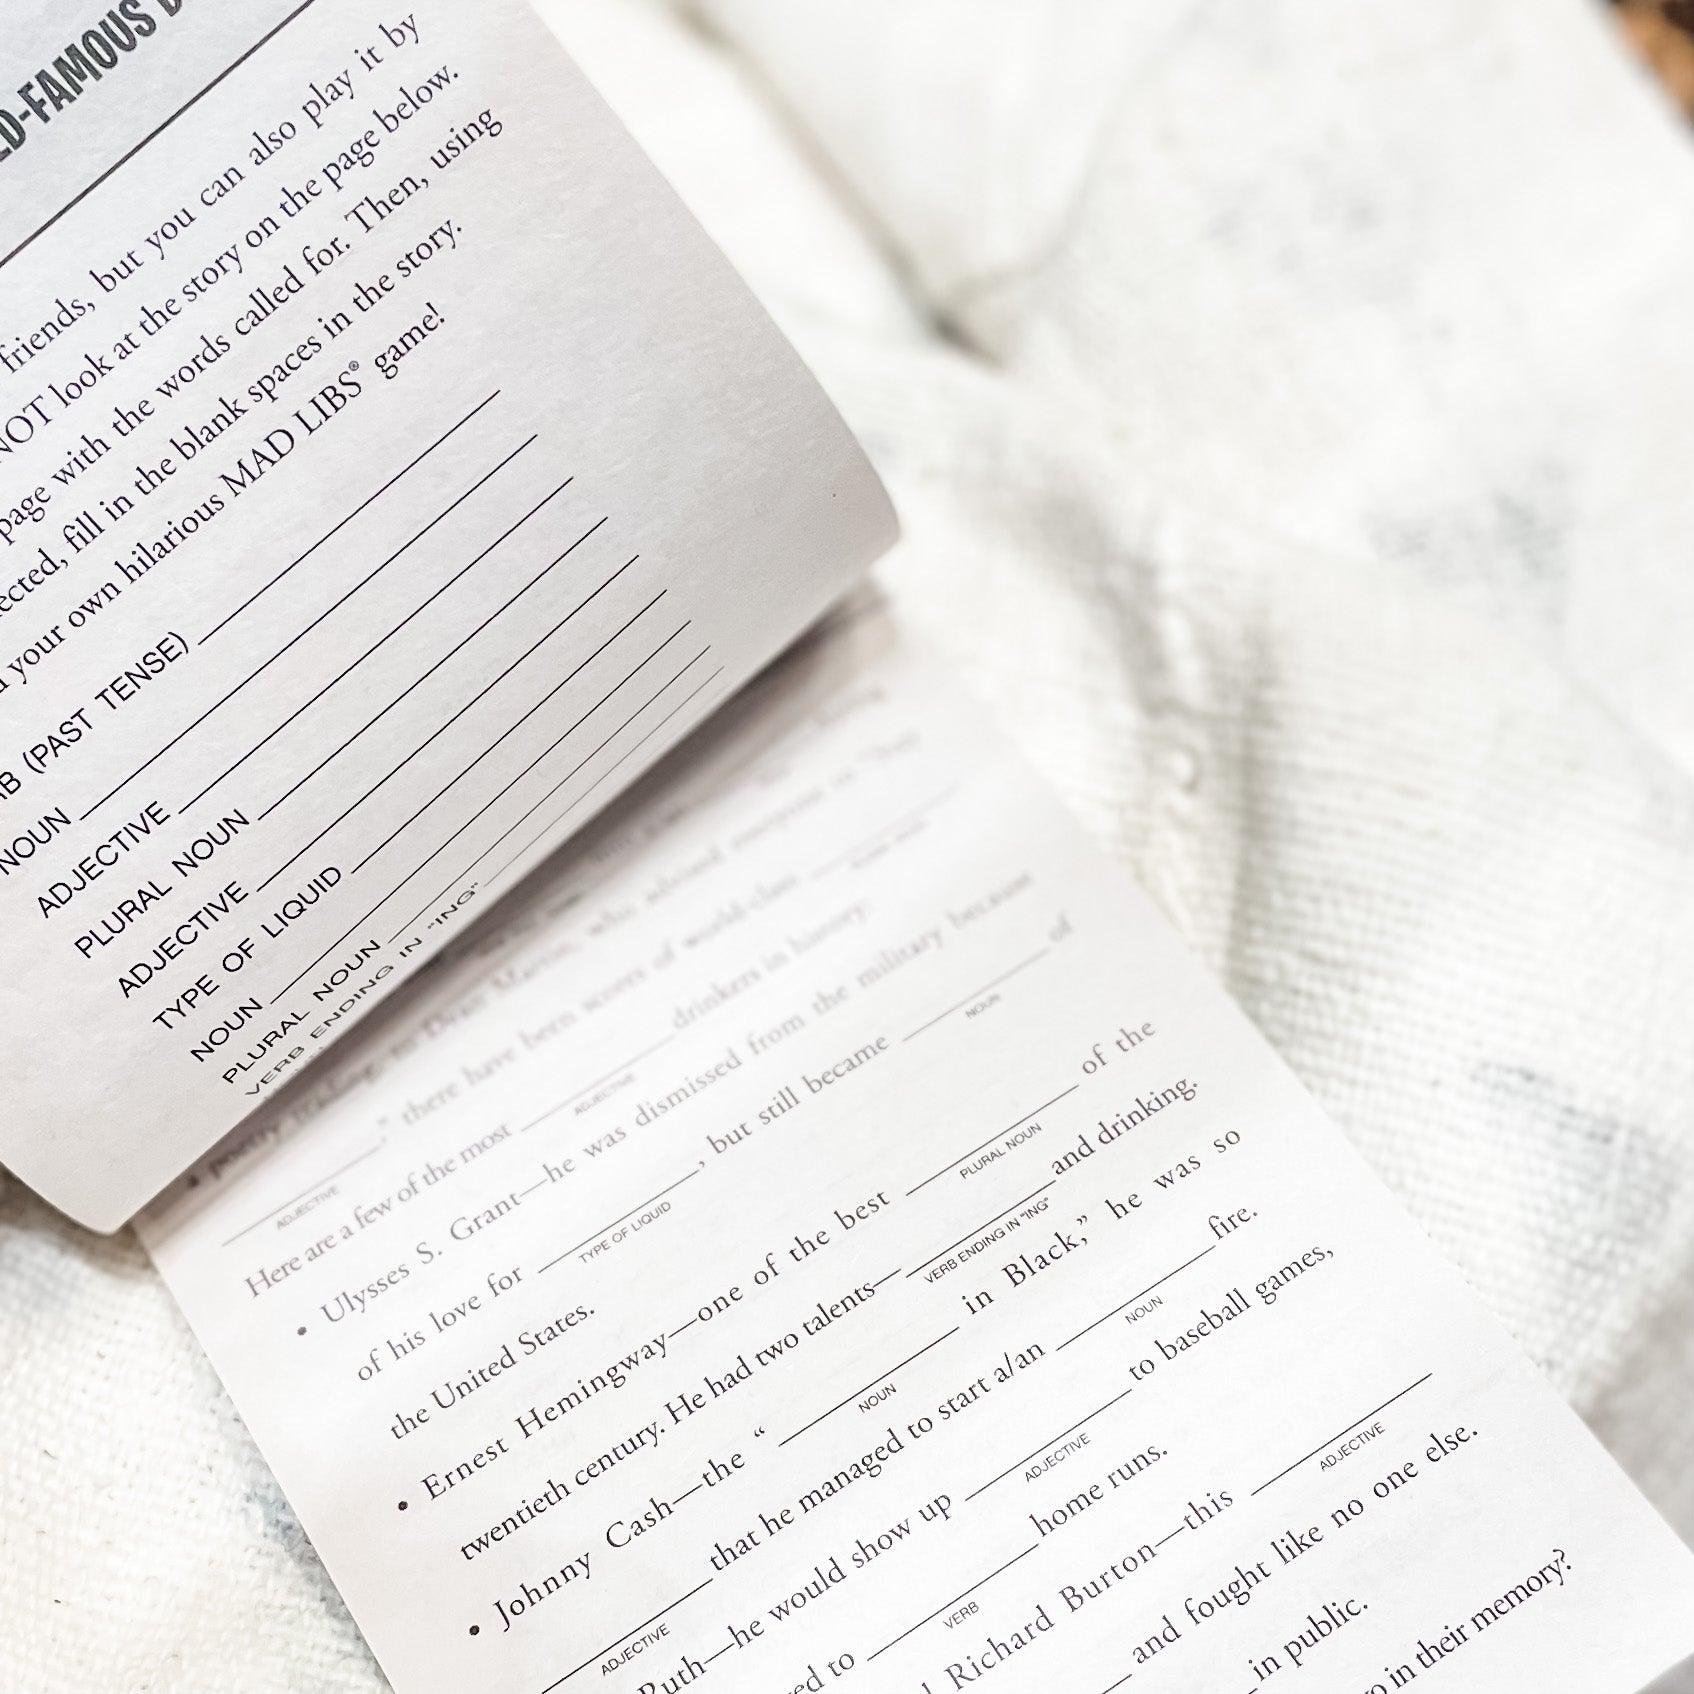 D-FAMOUS
friends, but you can also play it by
NOT look at the story on the page below.
page with the words called for. Then, using
ected, fill in the blank spaces in the story.
your own hilarious MAD LIBS® game!
B (PAST TENSE)
NOUN
ADJECTIVE
PLURAL NOUN
ADJECTIVE
TYPE OF LIQUID
NOUN
PLURAL NOUN
VERB ENDING IN "ING"
there have been scores of world-class
ADJECTIVE
Here are a few of the most drinkers in history:
ADJECTIVE
• Ulysses S. Grant—he was dismissed from the military because
of his love for , but still became of
TYPE OF LIQUID NOUN
the United States.
• Ernest Hemingway—one of the best of the
PLURAL NOUN
twentieth century. He had two talents— and drinking.
VERB ENDING IN "ING"
• Johnny Cash—the “ in Black,” he was so
NOUN
that he managed to start a/an fire.
ADJECTIVE NOUN
Ruth—he would show up to baseball games,
ADJECTIVE
ed to home runs.
VERB
Richard Burton—this
ADJECTIVE
and fought like no one else.
in public.
o in their memory?